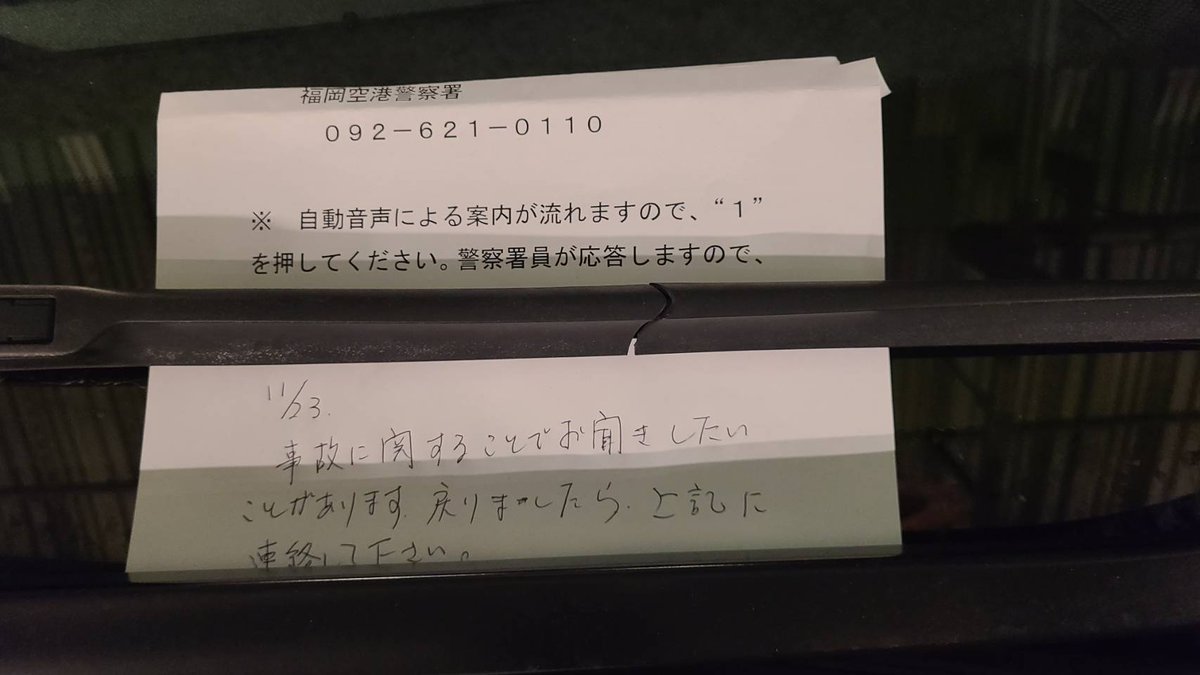 福岡空港警察署
０９２－６２１－０１１０
※　自動音声による案内が流れますので、“１”
を押してください。警察署員が応答しますので、
11/23.
事故に関することでお聞きしたい
ことがあります。戻りましたら、上記に
連絡して下さい。